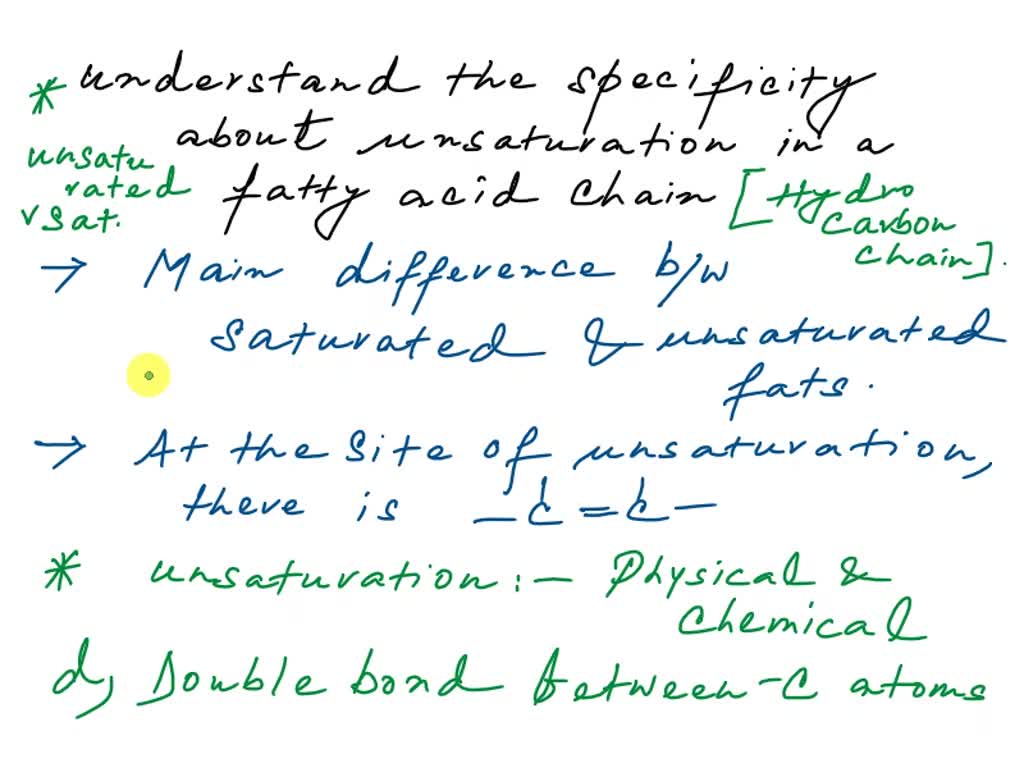 * understand the specificity
about unsaturation in a
fatty acid chain [Hydro
carbon
chain].
unsatu
rated
v sat.
→ Main difference b/w
saturated & unsaturated
fats.
→ At the site of unsaturation,
there is –C=C–
* unsaturation:– Physical &
chemical
d, Double bond between -C atoms